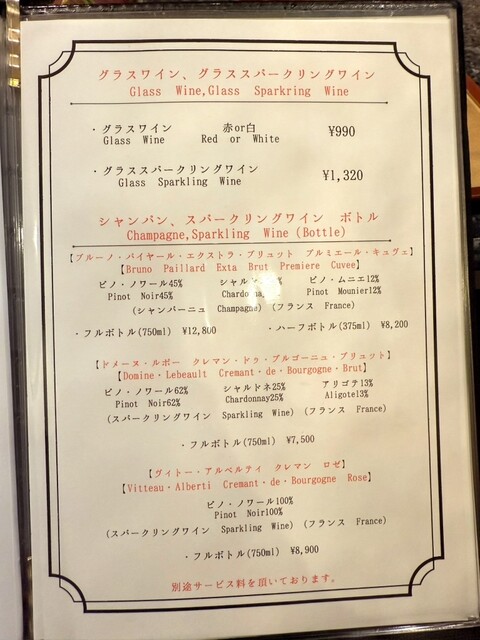 グラスワイン、グラススパークリングワイン
Glass Wine,Glass Sparkring Wine
・グラスワイン 赤or白 ¥990
Glass Wine Red or White
・グラススパークリングワイン ¥1,320
Glass Sparkling Wine
シャンパン、スパークリングワイン ボトル
Champagne,Sparkling Wine(Bottle)
【ブルーノ・パイヤール・エクストラ・ブリュット プルミエール・キュヴェ】
【Bruno Paillard Exta Brut Premiere Cuvee】
ピノ・ノワール45% ピノ・ムニエ12%
Pinot Noir45% Pinot Mounier12%
(シャンパーニュ Champagne) (フランス France)
・フルボトル(750ml) ¥12,800 ・ハーフボトル(375ml) ¥8,200
【ドメーヌ・ルボー クレマン・ドゥ・ブルゴーニュ・ブリュット】
【Domine・Lebeault Cremant・de・Bourgogne・Brut】
ピノ・ノワール62% シャルドネ25% アリゴテ13%
Pinot Noir62% Chardonnay25% Aligote13%
(スパークリングワイン Sparkling Wine) (フランス France)
・フルボトル(750ml) ¥7,500
【ヴィトー・アルベルティ クレマン ロゼ】
【Vitteau・Alberti Cremant・de・Bourgogne Rose】
ピノ・ノワール100%
Pinot Noir100%
(スパークリングワイン Sparkling Wine) (フランス France)
・フルボトル(750ml) ¥8,900
別途サービス料を頂いております。